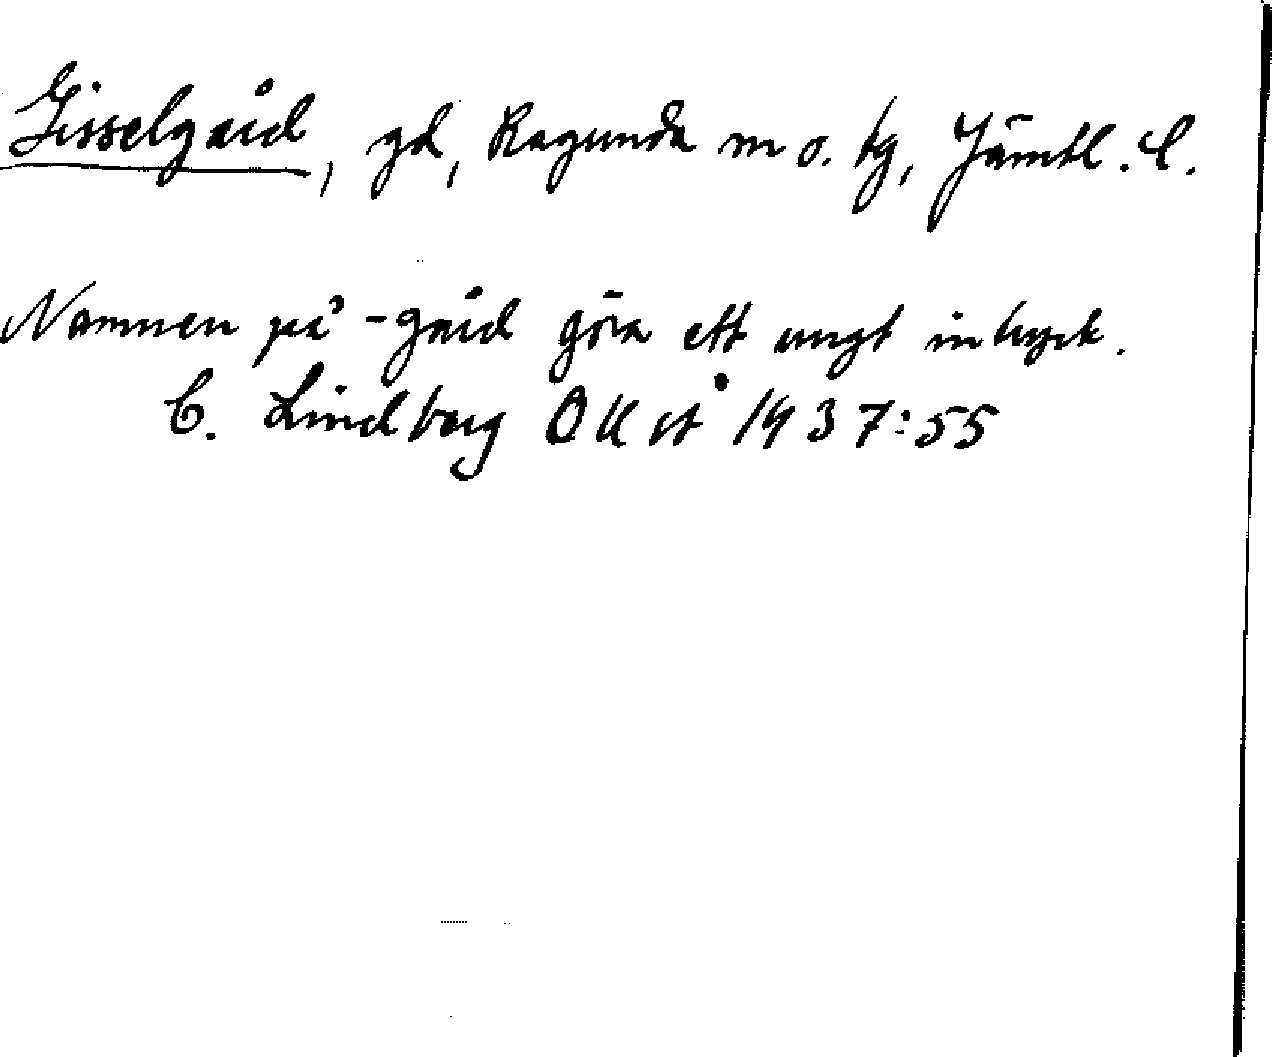 Gisselgård, gd, Ragunda sn o. tg, Jämtl. l.
Namnen på -gård göra ett ungt intryck.
C. Lindberg OKst 1937:55